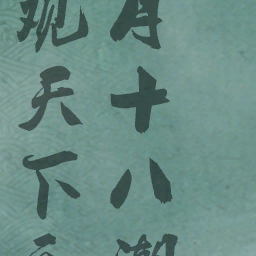 月十八潮
观天下